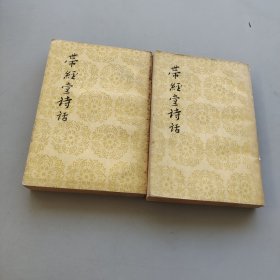 带经堂诗话
带经堂诗话